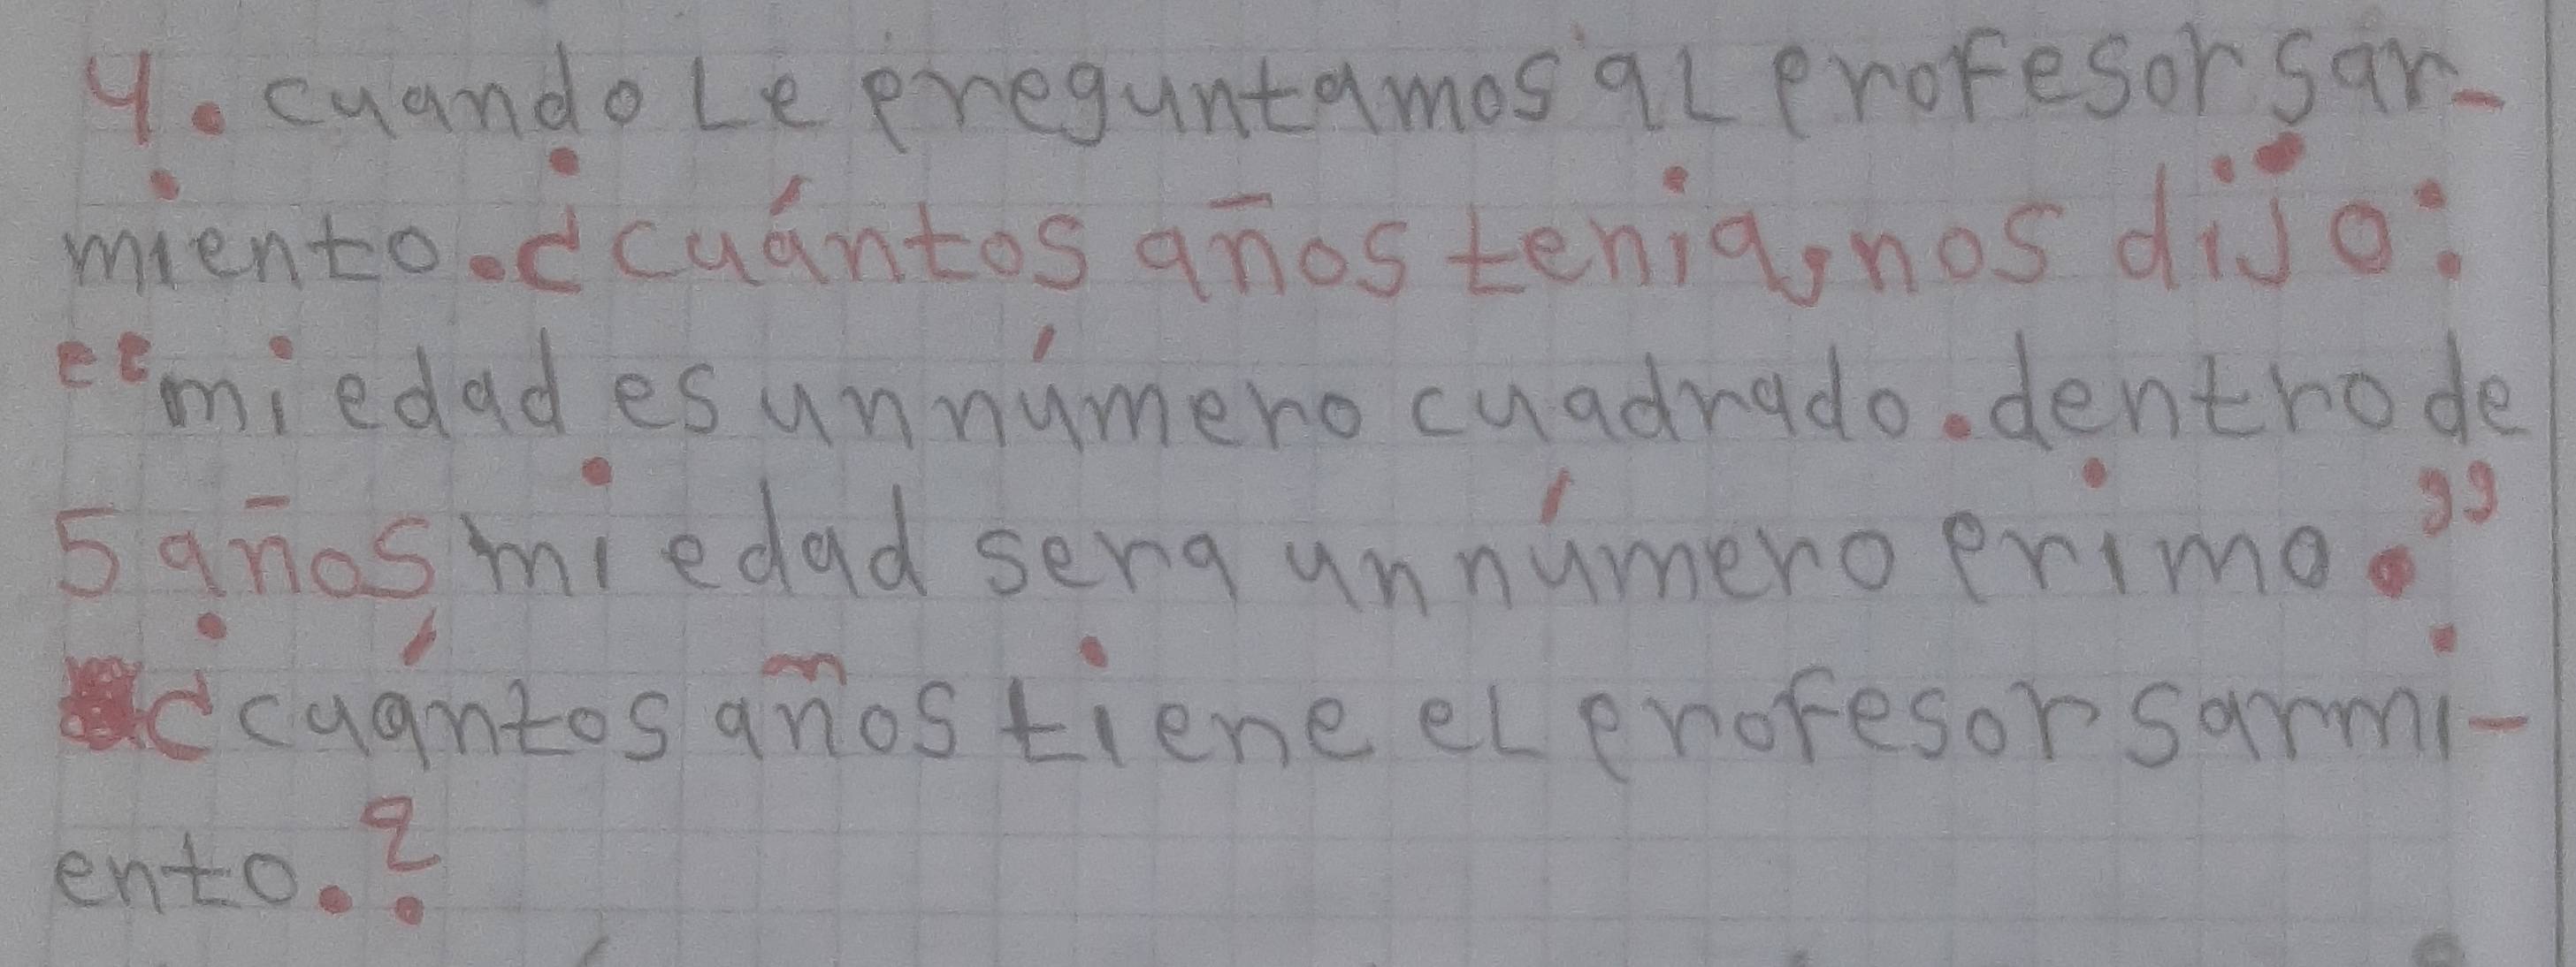 4. cuando Le preguntamos aL profesor sar-
miento. ¿cuántos años tenia, nos dijo:
“mi edad es un número cuadrado. dentro de
5 años mi edad sera un número primo.”
¿cuántos años tiene eL profesor sarmi-
ento.?